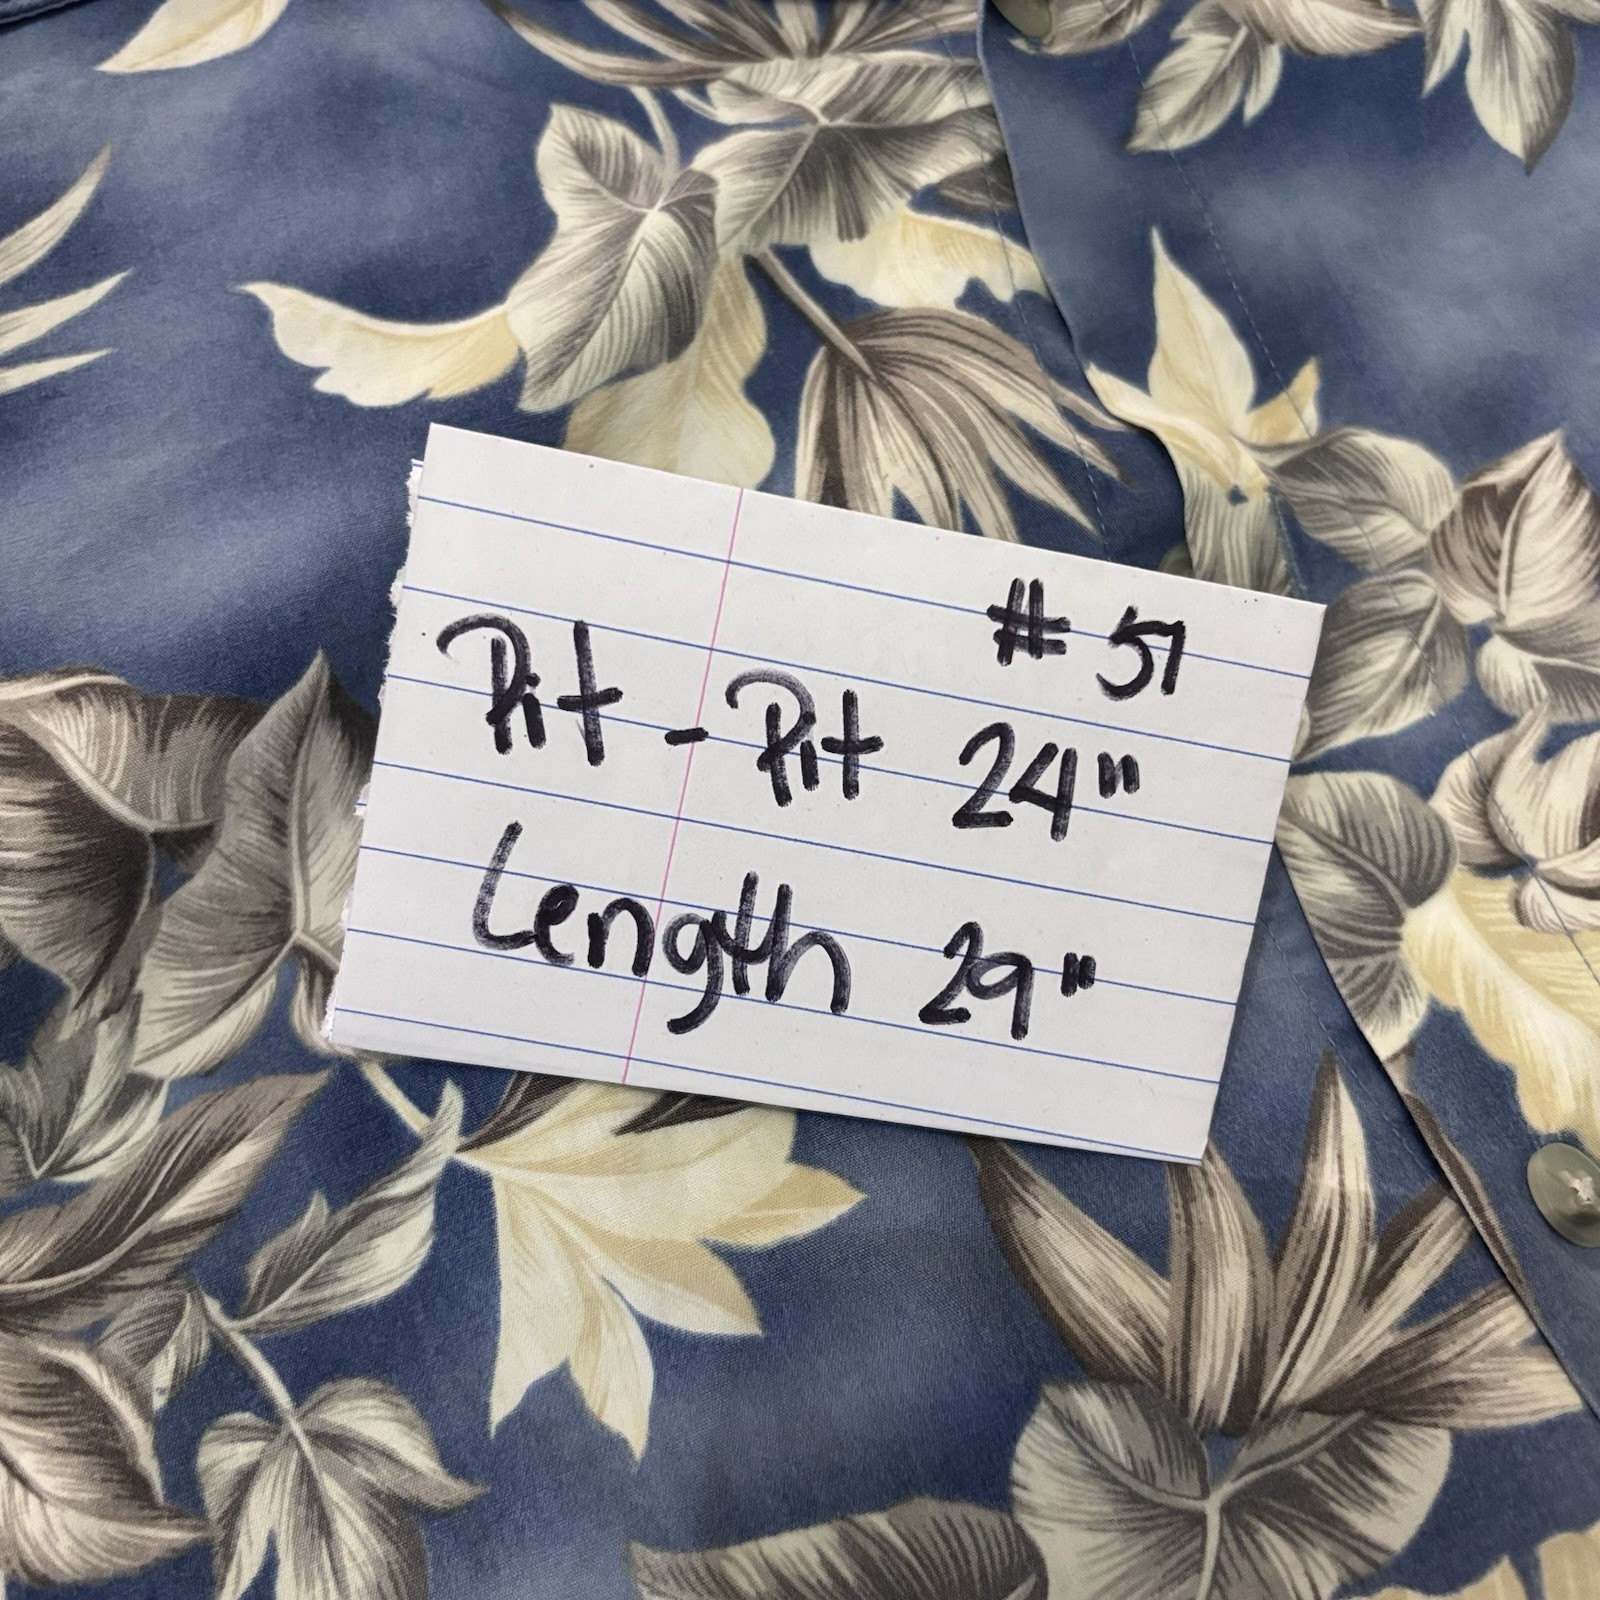 # 51
Pit - Pit 24"
Length 29"